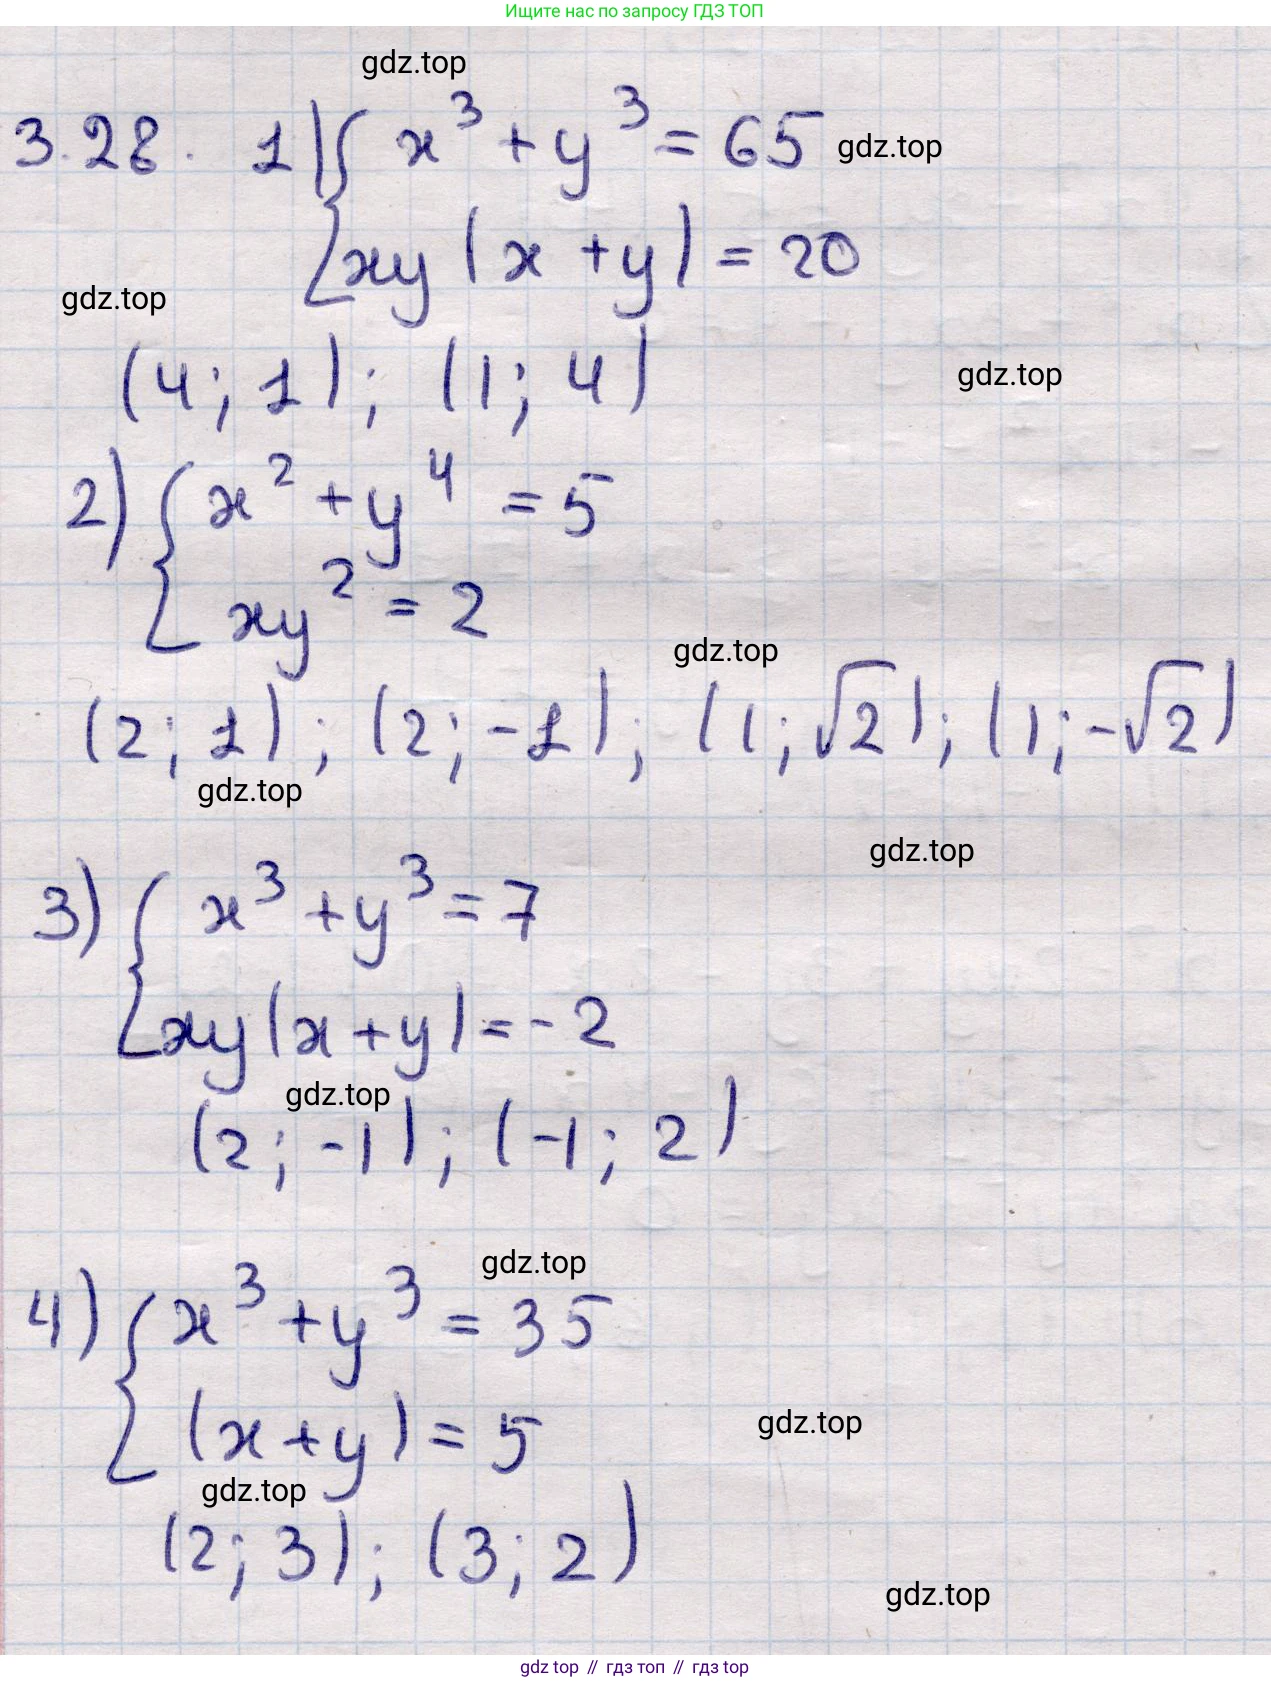 Ищите нас по запросу ГДЗ ТОП
gdz.top
3.28. 1) { x³ + y³ = 65
gdz.top
xy (x + y) = 20
gdz.top
(4; 1); (1; 4)
gdz.top
2) { x² + y⁴ = 5
xy² = 2
gdz.top
(2; 1); (2; -1); (1; √2); (1; -√2)
gdz.top
gdz.top
3) { x³ + y³ = 7
xy(x + y) = -2
gdz.top
(2; -1); (-1; 2)
gdz.top
4) { x³ + y³ = 35
(x + y) = 5
gdz.top
gdz.top
(2; 3); (3; 2)
gdz.top
gdz top // гдз топ // гдз top